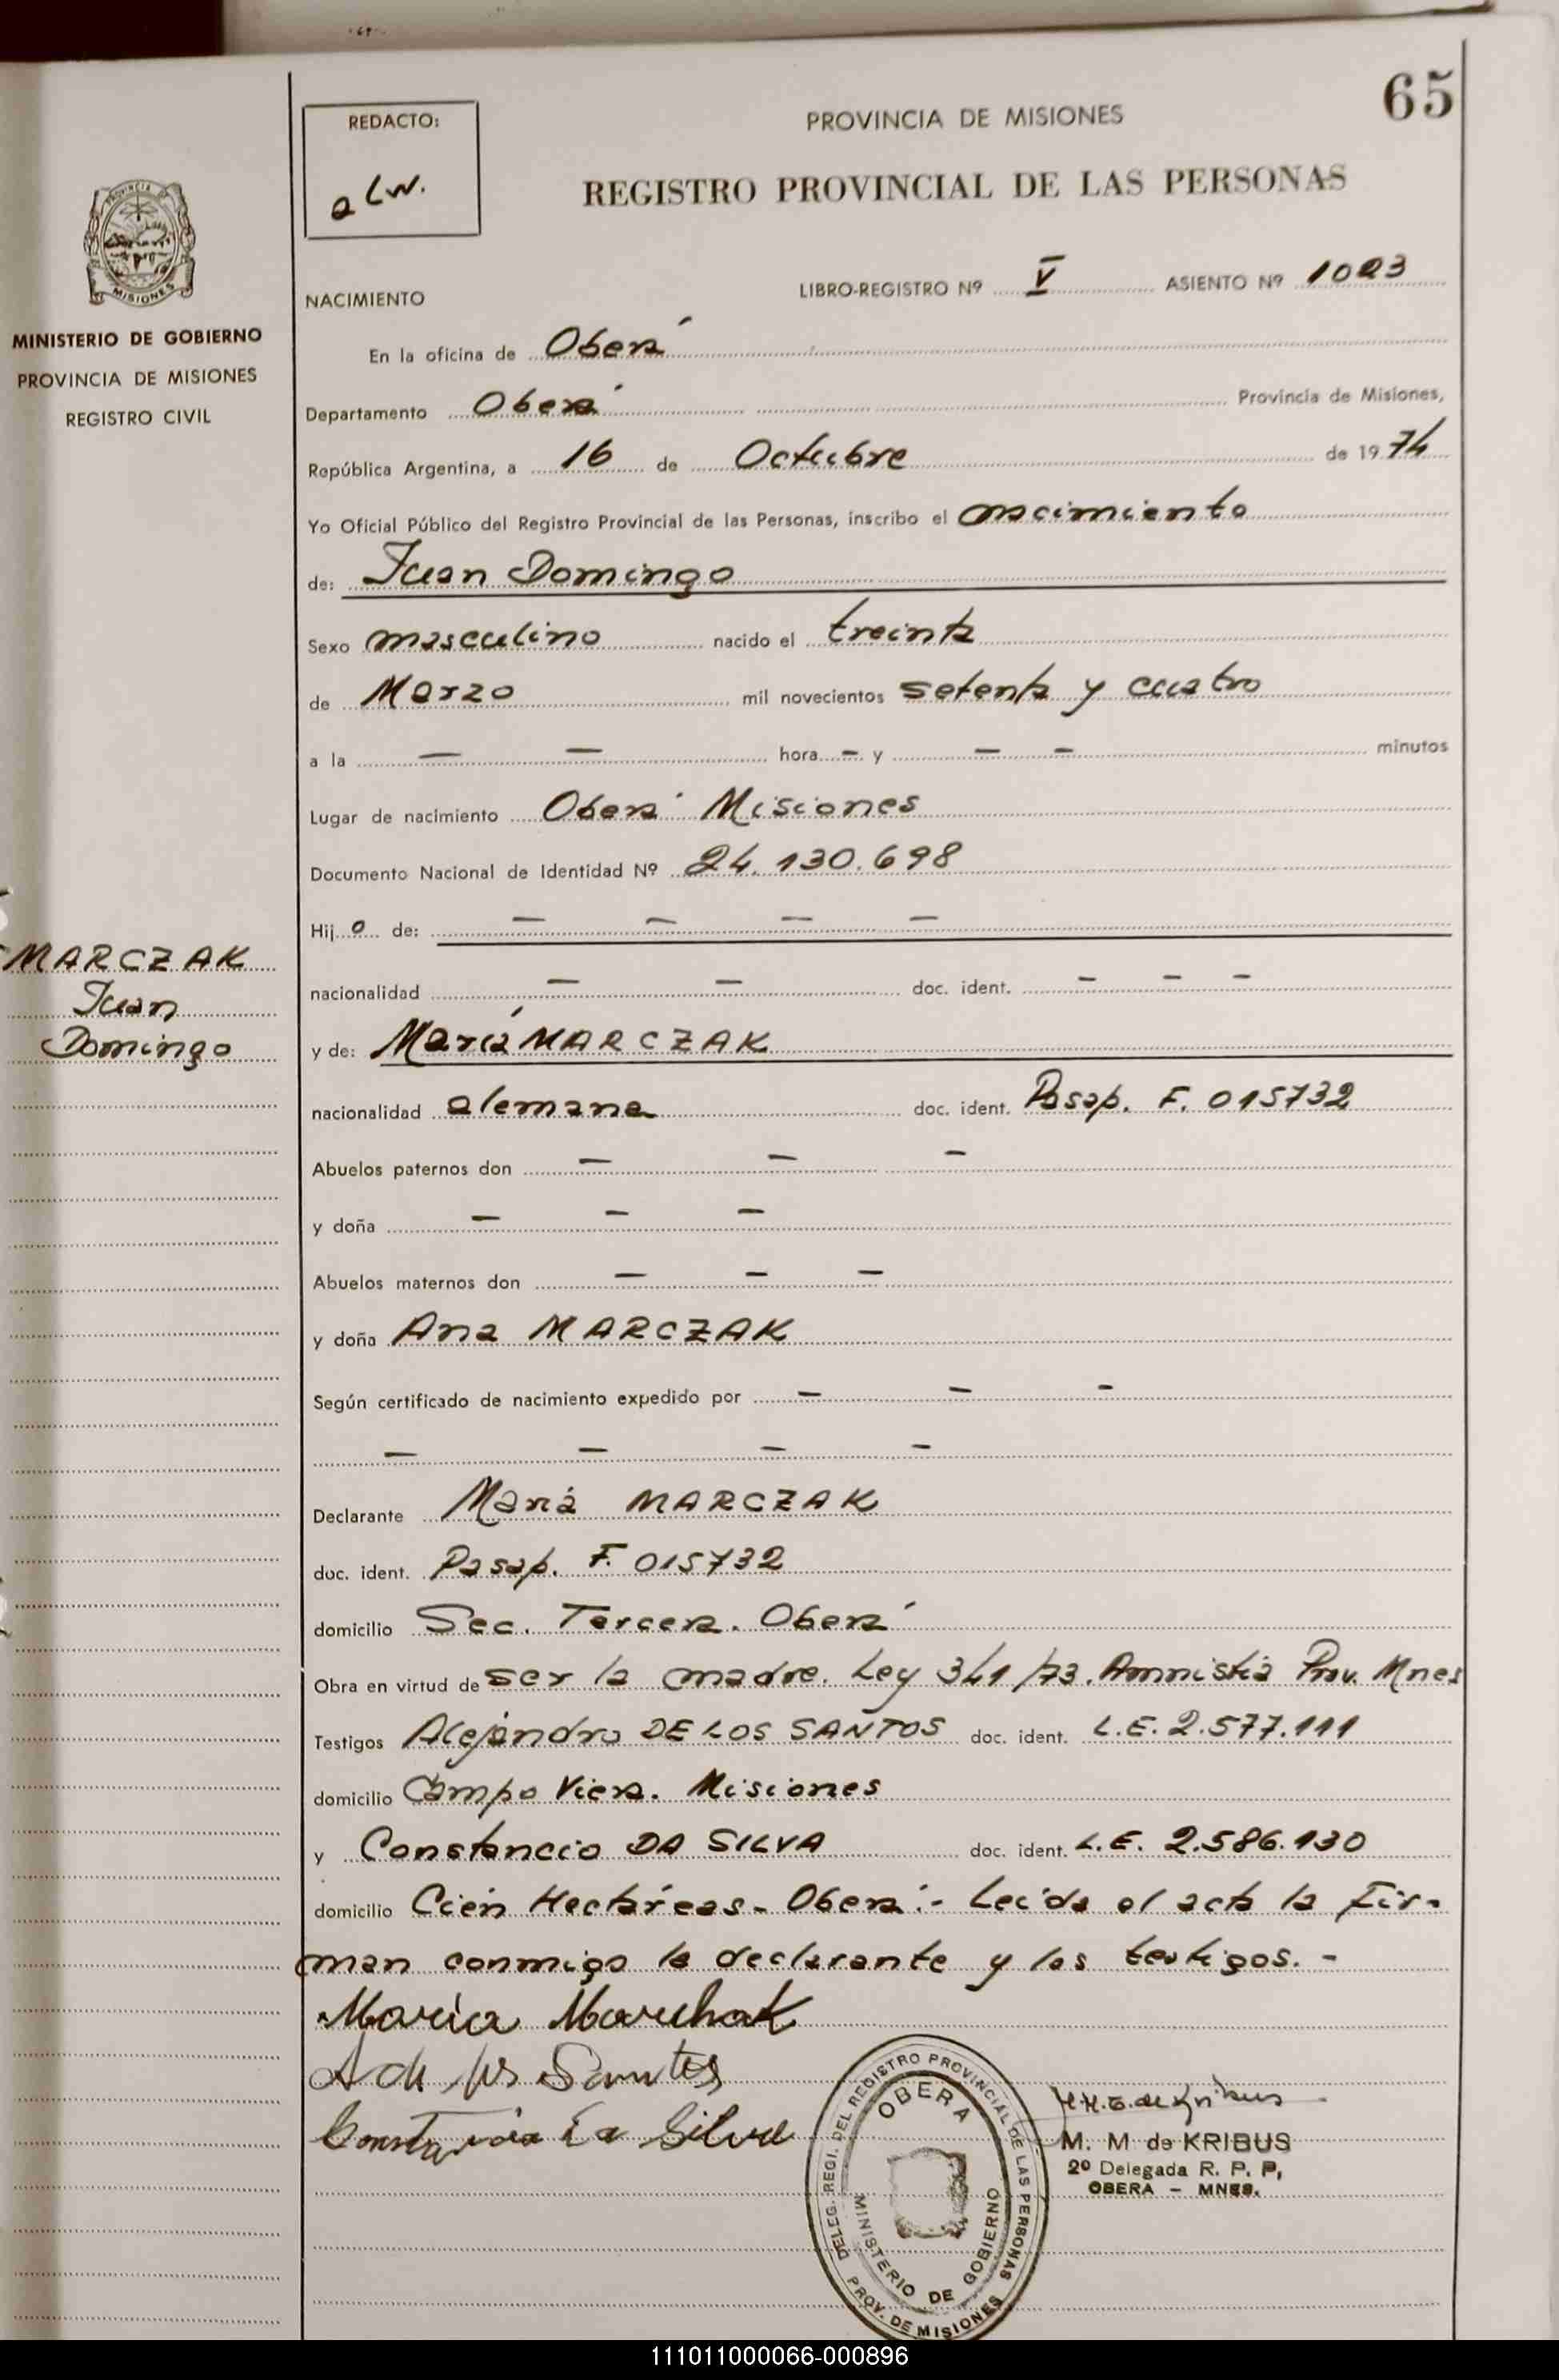 65
REDACTO:
a Lw.
PROVINCIA DE MISIONES
REGISTRO PROVINCIAL DE LAS PERSONAS
PROVINCIA DE
MISIONES
MINISTERIO DE GOBIERNO
PROVINCIA DE MISIONES
REGISTRO CIVIL
NACIMIENTO LIBRO-REGISTRO Nº V ASIENTO Nº 1023
En la oficina de Oberá
Departamento Oberá Provincia de Misiones,
República Argentina, a 16 de Octubre de 1974
Yo Oficial Público del Registro Provincial de las Personas, inscribo el nacimiento
de: Juan Domingo
Sexo masculino nacido el treinta
de Marzo mil novecientos setenta y cuatro
a la — — hora - y — — minutos
Lugar de nacimiento Oberá Misiones
Documento Nacional de Identidad Nº 24.130.698
Hijo de: — — — —
nacionalidad — — doc. ident. — — —
MARCZAK
Juan
Domingo
y de: María MARCZAK
nacionalidad alemana doc. ident. Pasap. F. 015732
Abuelos paternos don — — —
y doña — — —
Abuelos maternos don — — —
y doña Ana MARCZAK
Según certificado de nacimiento expedido por — — -
— — — —
Declarante María MARCZAK
doc. ident. Pasap. F. 015732
domicilio Sec. Tercera. Oberá
Obra en virtud de ser la madre. Ley 341/73. Amnistia Prov. Mnes
Testigos Alejandro DE LOS SANTOS doc. ident. L.E. 2.577.111
domicilio Campo Viera. Misiones
y Constancio DA SILVA doc. ident. L.E. 2.586.130
domicilio Cien Hectáreas - Oberá.- Leída el acta la fir-
man conmigo la declarante y los testigos. -
Maria Marchak
A de los Santos
Constancio Da Silva
DELEG. REGI. DEL REGISTRO PROVINCIAL DE LAS PERSONAS
OBERA
MINISTERIO DE GOBIERNO
PROV. DE MISIONES
M. M. de Kribus
M. M de KRIBUS
2º Delegada R. P. P,
OBERA - MNES.
111011000066-000896